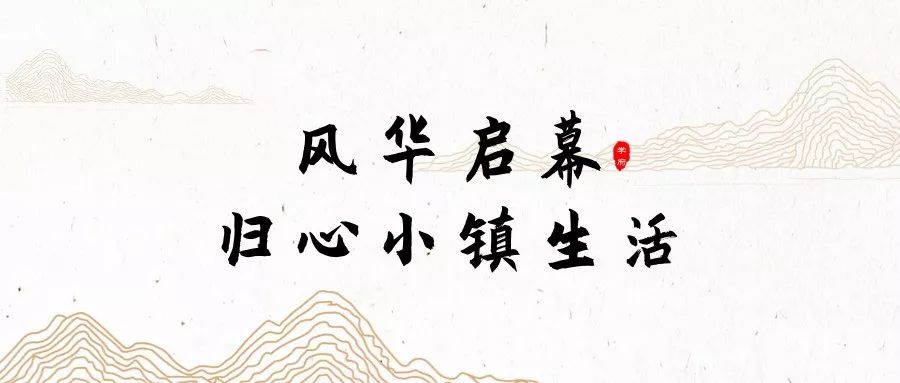 风华启幕
学府
归心小镇生活